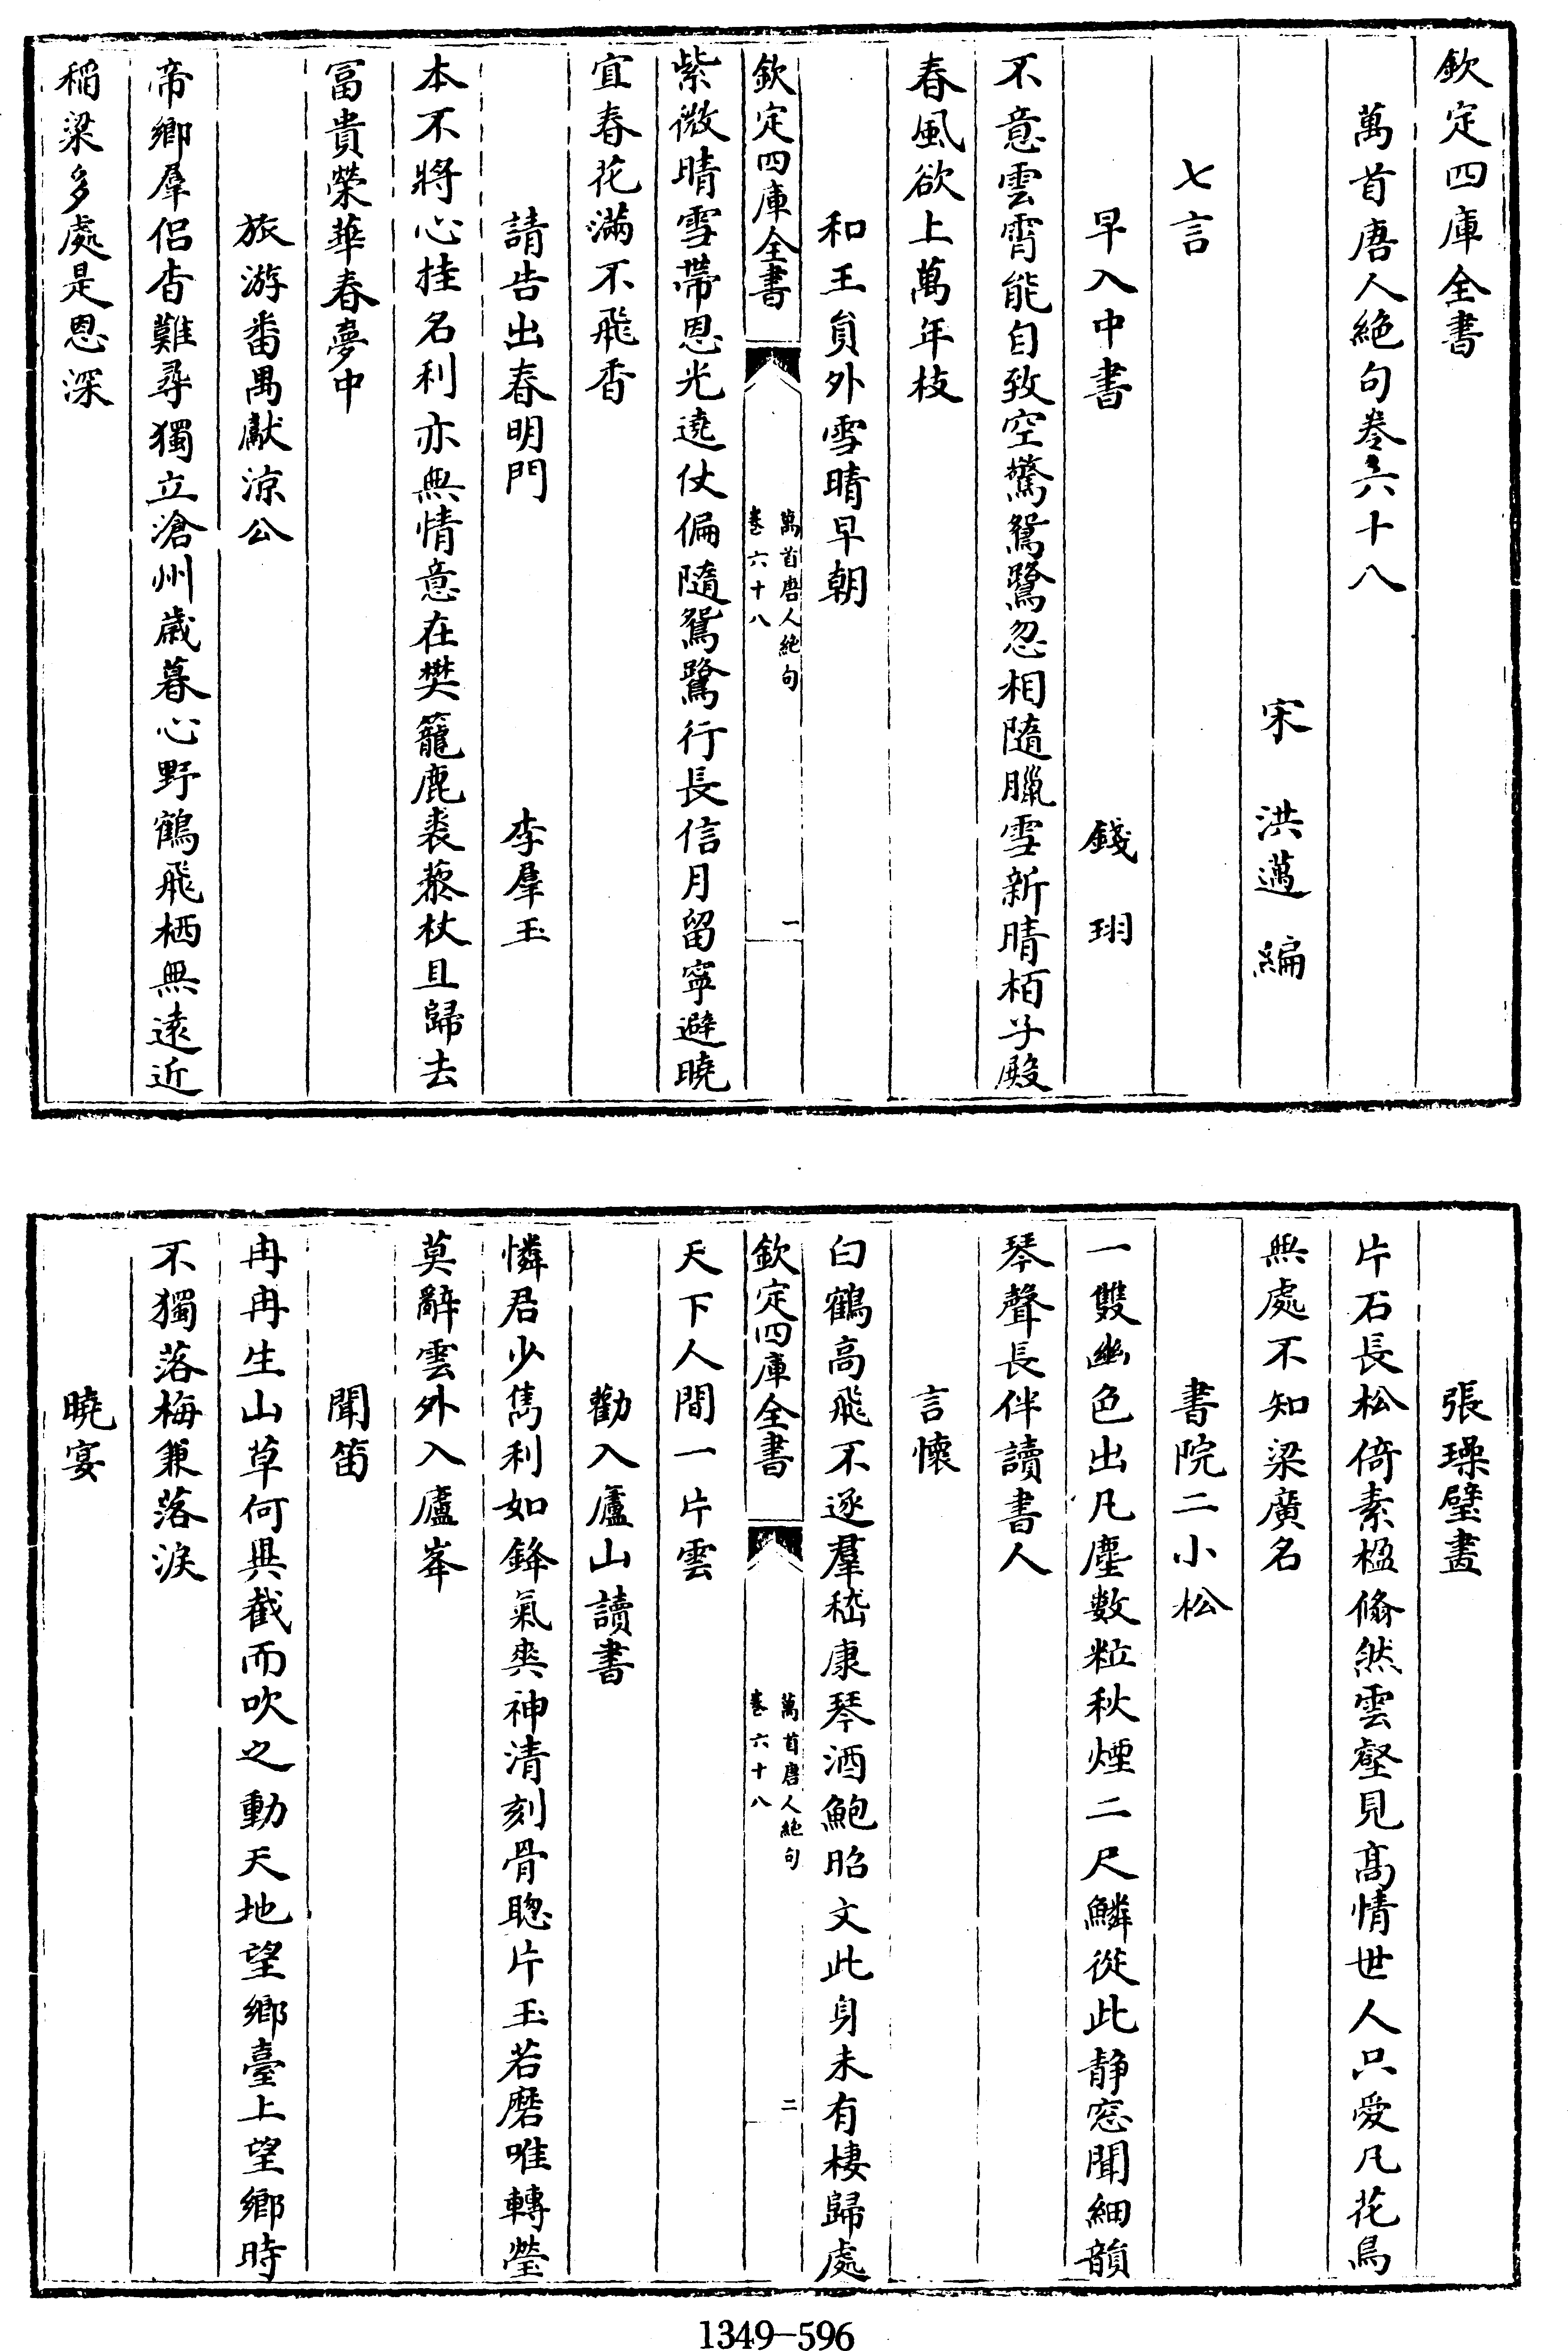 欽定四庫全書
萬首唐人絶句卷六十八
宋　洪邁　編
七言
早入中書　錢珝
不意雲霄能自致空驚鴛鷺忽相隨臘雪新晴栢子殿
春風欲上萬年枝
和王員外雪晴早朝
欽定四庫全書
萬首唐人絶句
卷六十八
一
紫微晴雪帶恩光遶仗偏隨鴛鷺行長信月留寧避曉
宜春花滿不飛香
請告出春明門　李羣玉
本不將心挂名利亦無情意在樊籠鹿裘藜杖且歸去
富貴榮華春夢中
旅游番禺獻涼公
帝鄉羣侣杳難尋獨立滄州歲暮心野鶴飛栖無逺近
稻粱多處是恩深
張璪壁畫
片石長松倚素楹翛然雲壑見髙情世人只愛凡花鳥
無處不知梁廣名
書院二小松
一雙幽色出凡塵數粒秋煙二尺鱗從此静窓聞細韻
琴聲長伴讀書人
言懷
白鶴高飛不逐羣嵇康琴酒鮑昭文此身未有棲歸處
欽定四庫全書
萬首唐人絶句
卷六十八
二
天下人間一片雲
勸入廬山讀書
憐君少雋利如鋒氣爽神清刻骨聰片玉若磨唯轉瑩
莫辭雲外入廬峯
聞笛
冉冉生山草何異截而吹之動天地望鄉臺上望鄉時
不獨落梅兼落淚
曉宴
1349-596